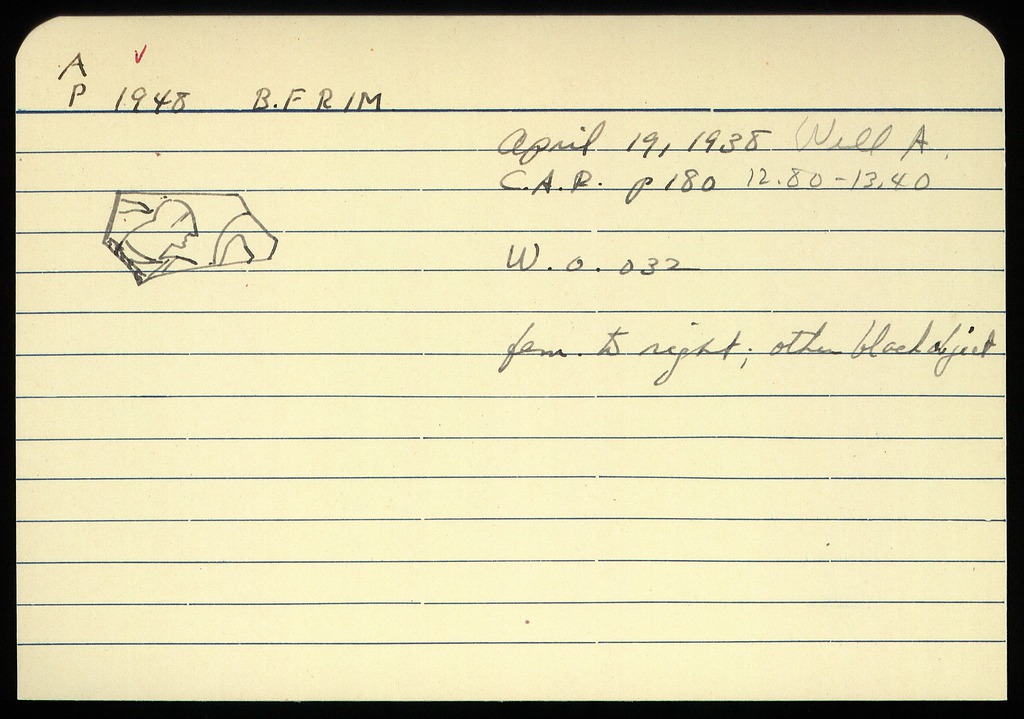 A
P 1948 B.F RIM
April 19, 1938 Well A.
C.A.R. p 180 12.80-13.40
W. 0.032
fem. to right; other black object